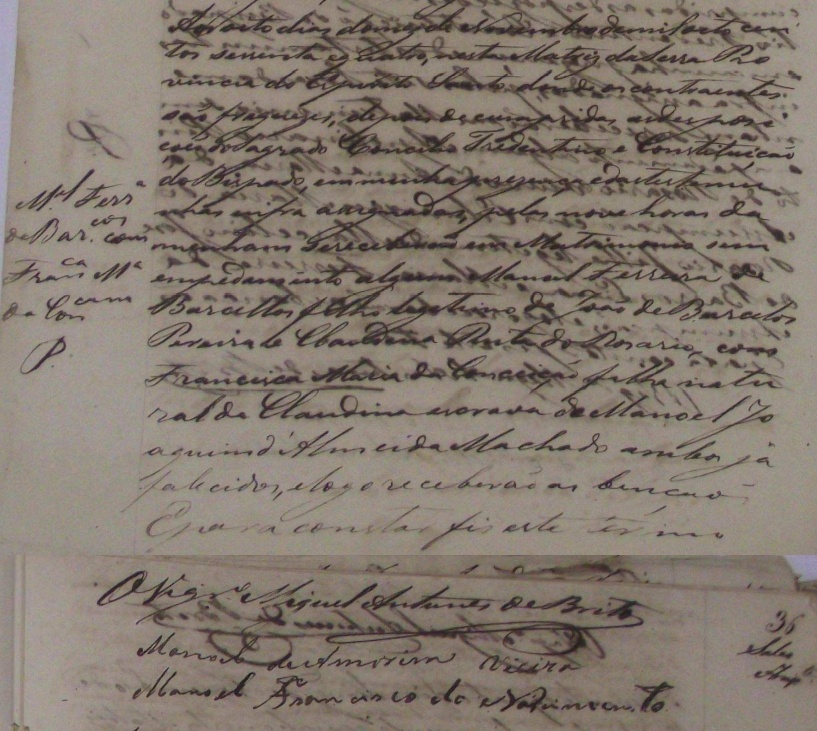 Aos oito dias do mes de Novembro de mil oito cen
tos secenta e quatro, nesta Matriz da Serra Pro
vincia do Espirito Santo, donde os contraentes
são freguezes, depois de cumpridas as desposi
coens do Sagrado Concilio Tredentino e Constituição
do Bispado, em minha presença e das testemu
nhas infra assignadas, pelas nove horas da
menham se receberão em Matrimonio sem
empedimento algum Manoel Ferreira de
Barcellos filho legitimo de João de Barcelos
Pereira e Claudina Pinta do Rosario, com
Francisca Maria da Conceição filha natu
ral de Claudina escrava de Manoel Jo
aquim d'Almeida Machado ambos já
falecidos, e logo receberão as bencoens
E para constar fis este termo
Mel Ferra
de Bar.cos com
Fran.ca Ma
da Con.cam
P.
O Vigro Miguel Antunes de Brito
Manoel de Amorim Vieira
Manoel Francisco do Nascimento
36